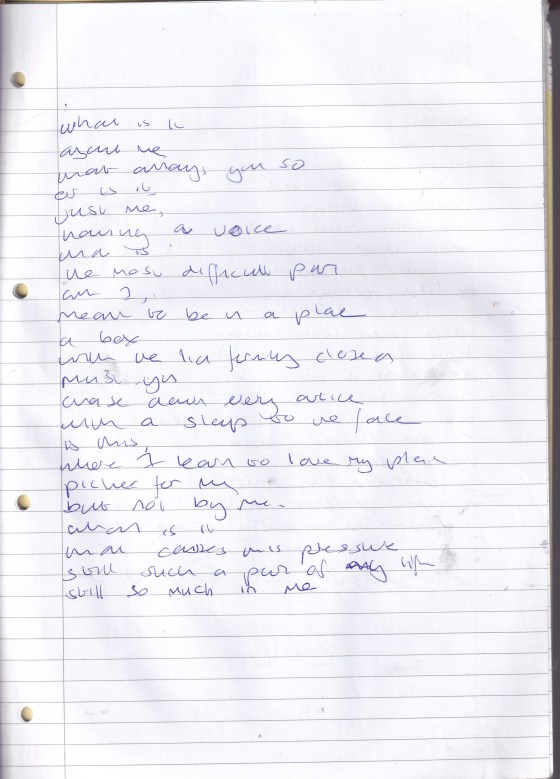 what is it
about me
that annoys you so
or is it
just me,
having a voice
that is
the most difficult part
am I,
meant to be in a place
a box
with the lid firmly closed
must you
chase down every
with a slap to the face
is this,
where I learn to love my place
picked for me
but not by me.
what is it
that causes this pressure
still such a part of my life
still so much in me